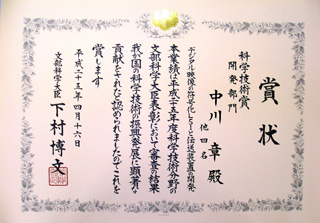 賞状
科学技術賞
開発部門
中川 章 殿
他四名
デジタル映像の符号化LSIと伝送装置の開発
本業績は平成二十五年度科学技術分野の
文部科学大臣表彰において審査の結果
我が国の科学技術の振興発展に顕著な
貢献をされたと認められましたのでこれを
賞します
平成二十五年四月十六日
文部科学大臣 下村博文